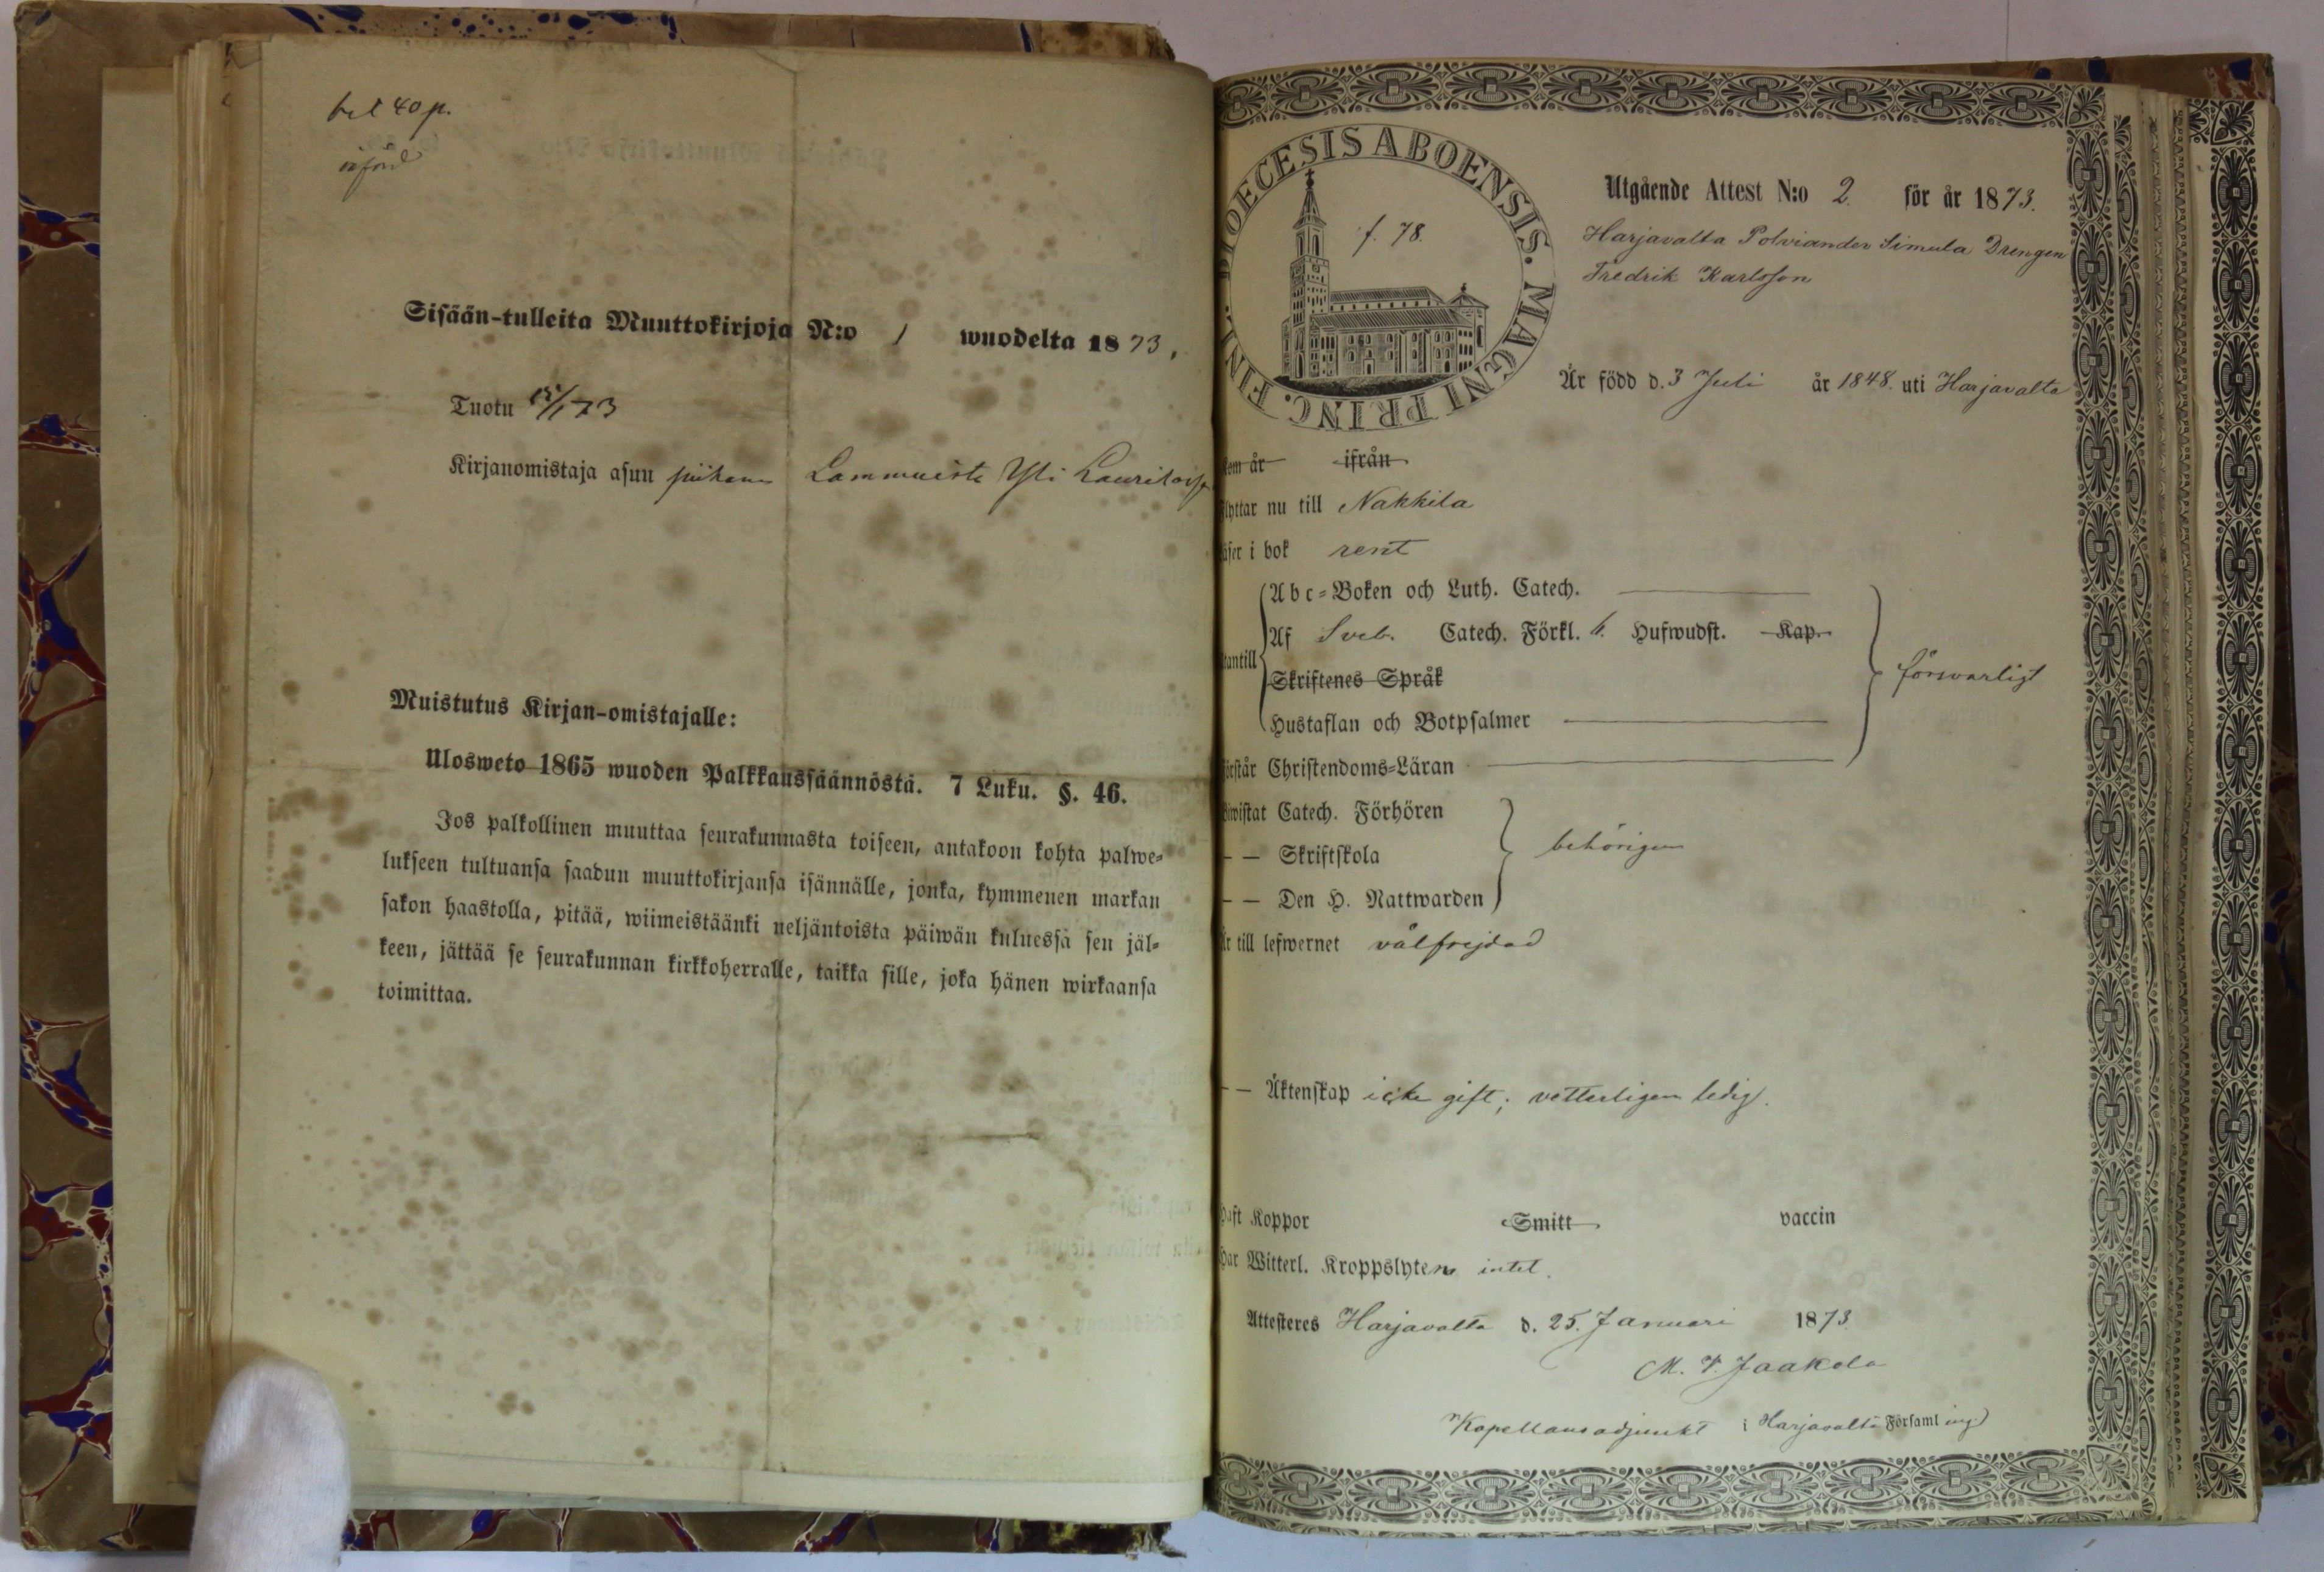 bet 40 p.
införd
Sisään-tulleita Muuttokirjoja N:o 1 wuodelta 1873,
Tuotu 15/1 73
Kirjanomistaja asuu piikana Lammaista Yli Laurilassa
Muistutus Kirjan-omistajalle:
Ulosweto 1865 wuoden Palkkaussäännöstä. 7 Luku. §. 46.
Jos palkollinen muuttaa seurakunnasta toiseen, antakoon kohta palwe=
lukseen tultuansa saadun muuttokirjansa isännälle, jonka, kymmenen markan
sakon haastolla, pitää, wiimeistäänki neljäntoista päiwän kuluessa sen jäl=
keen, jättää se seurakunnan kirkkoherralle, taikka sille, joka hänen wirkaansa
toimittaa.
DIOECESIS ABOENSIS. MAGNI PRINC. FINL.
f. 78.
Utgående Attest N:o 2. för år 1873.
Harjavalta Polviander Simula Drengen
Fredrik Karlsson
Är född d. 3 Juli år 1848. uti Harjavalta
Kom år ifrån
Flyttar nu till Nakkila
Läser i bok rent
Abc=Boken och Luth. Catech.
Af Sveb. Catech. Förkl. 6. Hufwudst. Kap.
utantill
Skriftenes Språk
försvarligt
Hustaflan och Botpsalmer
Förstår Christendoms=Läran
Biwistat Catech. Förhören
— — Skriftskola
behörigen
— — Den H. Nattwarden
Är till lefwernet välfrejdad
— — Äktenskap icke gift; vetterligen ledig.
Haft Koppor Smitt vaccin
Har Witterl. Kroppslyten intet.
Attesteres Harjavalta d. 25. Januari 1873
M. V. Jaakola
Kapellansadjunkt i Harjavalta Församling